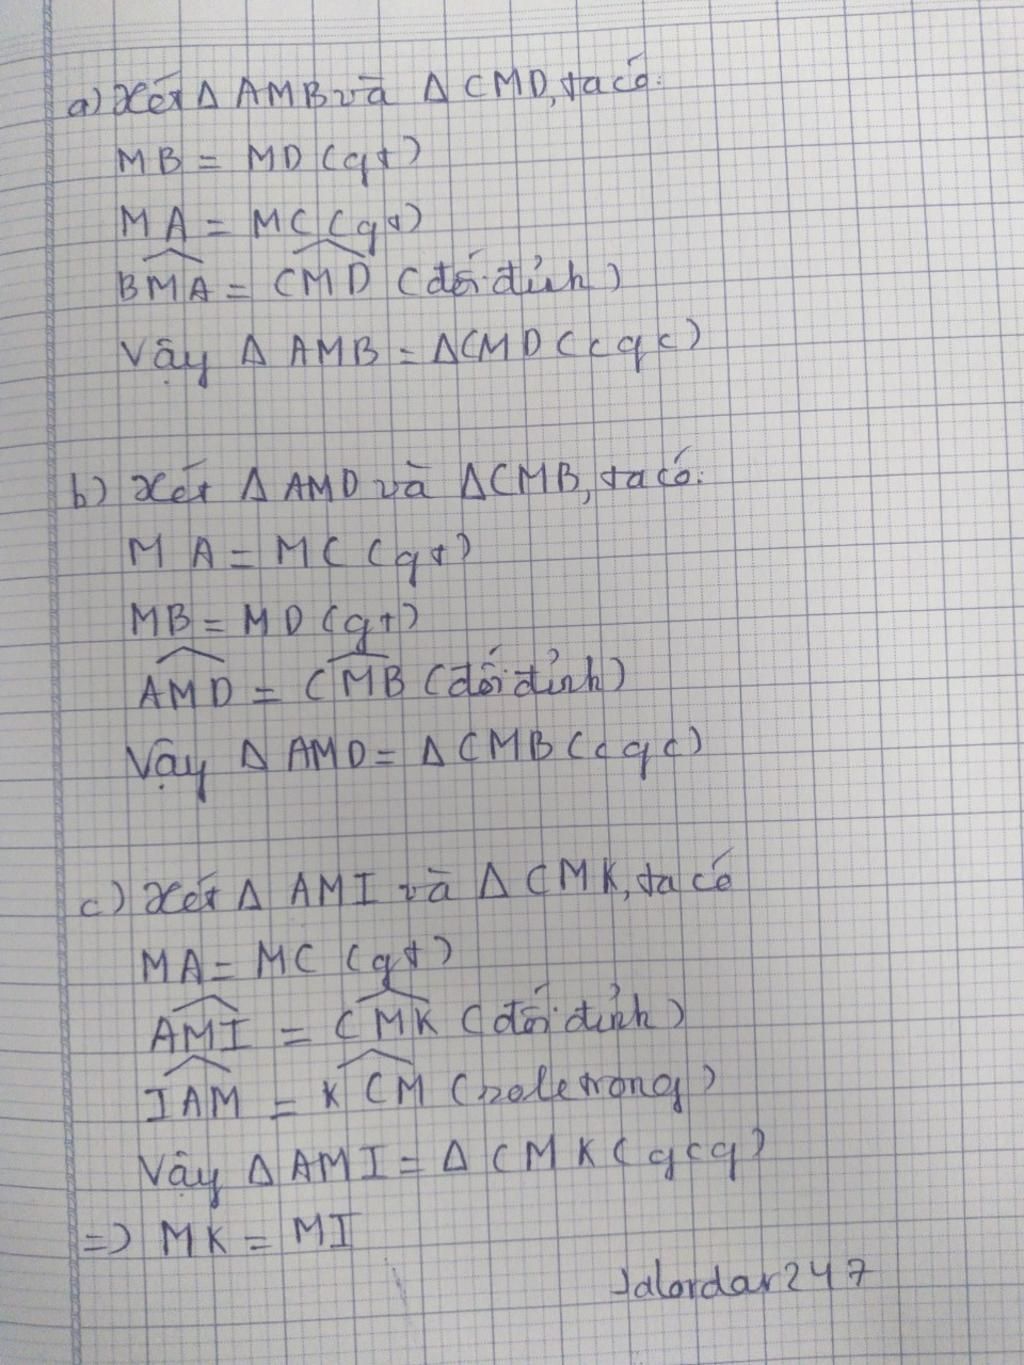 a) Xét Δ AMB và Δ CMD, ta có:
MB = MD (gt)
MA = MC (gt)
BMA = CMD (đối đỉnh)
Vậy Δ AMB = ΔCMD (c g c)
b) Xét Δ AMD và ΔCMB, ta có:
MA = MC (gt)
MB = MD (gt)
AMD = CMB (đối đỉnh)
Vậy Δ AMD = Δ CMB (c g c)
c) Xét Δ AMI và Δ CMK, ta có
MA = MC (gt)
AMI = CMK (đối đỉnh)
IAM = KCM (so le trong)
Vậy Δ AMI = Δ CMK (g c g)
=> MK = MI
Jalordar247